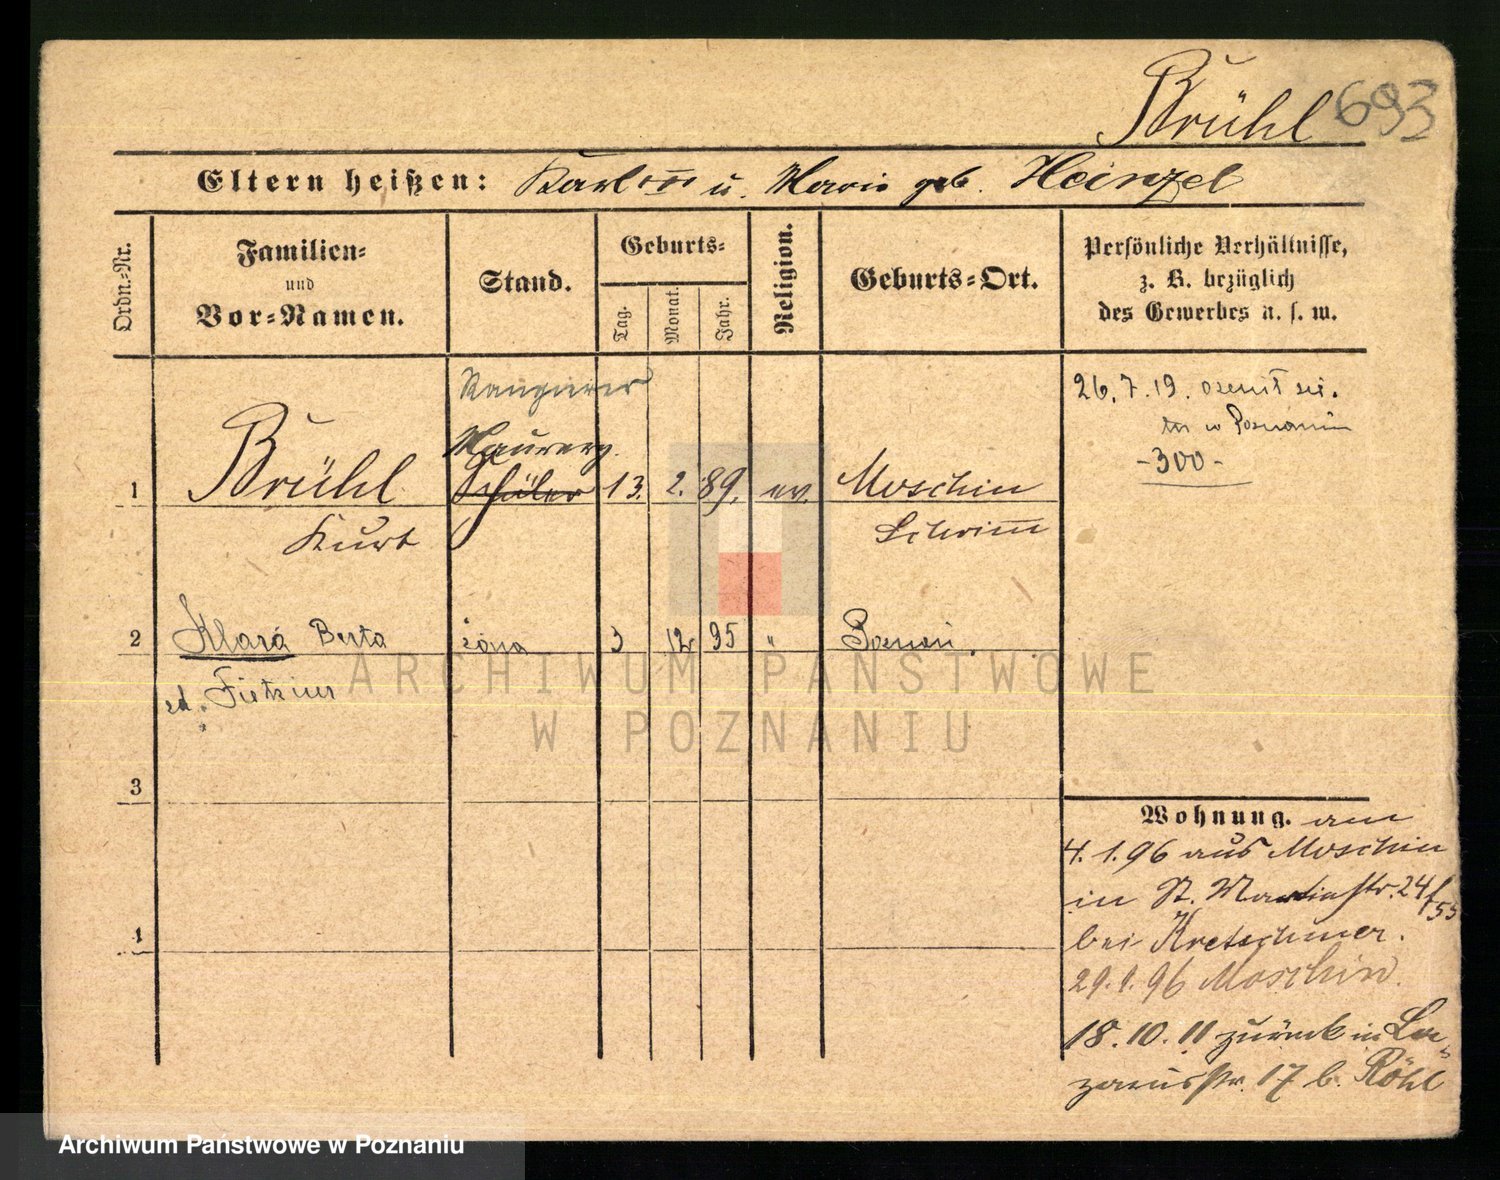 Brühl 693
Eltern heißen: Karl u. Marie geb. Heinzel
Ordn.-Nr.
Familien-
und
Vor-Namen.
Stand.
Geburts-
Tag.
Monat.
Jahr.
Religion.
Geburts-Ort.
Persönliche Verhältnisse,
z. B. bezüglich
des Gewerbes u. s. w.
26.7.19. ożenił się.
w Poznaniu
-300-
Maurerg.
1 Brühl Schüler 13. 2. 89. ev. Moschin
Kurt Schrimm
2 Klara Berta żona 3 12 95 " Poznań.
3
4
Wohnung. am
4.1.96 aus Moschin
in St. Martinstr. 24/55
bei Kretschmer.
29.1.96 Moschin.
18.10.11 zurück in La-
zarusstr. 17 b. Röhl
ARCHIWUM PAŃSTWOWE
W POZNANIU
Archiwum Państwowe w Poznaniu